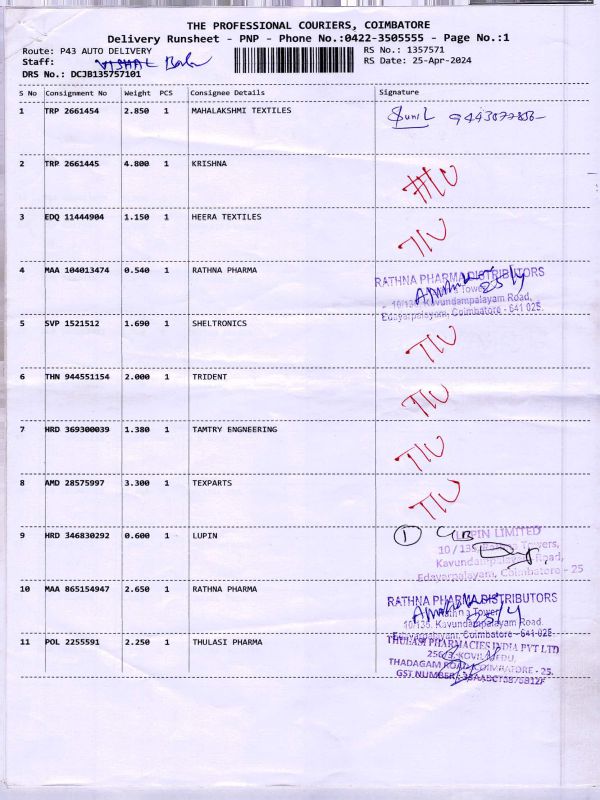 THE PROFESSIONAL COURIERS, COIMBATORE
Delivery Runsheet - PNP - Phone No.:0422-3505555 - Page No.:1
Route: P43 AUTO DELIVERY RS No.: 1357571
Staff: VISHAL RS Date: 25-Apr-2024
DRS No.: DCJB135757101
S No Consignment No Weight PCS Consignee Details Signature
1 TRP 2661454 2.850 1 MAHALAKSHMI TEXTILES Sunil
2 TRP 2661445 4.800 1 KRISHNA
3 EDQ 11444904 1.150 1 HEERA TEXTILES TIU
4 MAA 104013474 0.540 1 RATHNA PHARMA RATHNA PHARMA DISTRIBUTORS
25/4
10/135, Kavundampalayam Road,
Edayarpalayam, Coimbatore - 641 025.
5 SVP 1521512 1.690 1 SHELTRONICS TIU
6 THN 944551154 2.000 1 TRIDENT TIU
7 HRD 369300039 1.380 1 TAMTRY ENGNEERING TIU
8 AMD 28575997 3.300 1 TEXPARTS TIU
9 HRD 346830292 0.600 1 LUPIN 1 LUPIN LIMITED
10 / 135, Rathna Towers,
Kavundampalayam Road,
Edayarpalayam, Coimbatore - 25
10 MAA 865154947 2.650 1 RATHNA PHARMA RATHNA PHARMA DISTRIBUTORS
Rathna Tower
25/4
10/135, Kavundampalayam Road.
Edayarpalayam, Coimbatore - 641 025.
11 POL 2255591 2.250 1 THULASI PHARMA THULASI PHARMACIES INDIA PVT LTD
KOVILMEDU,
THADAGAM ROAD, COIMBATORE - 25.
GST NUMBER: